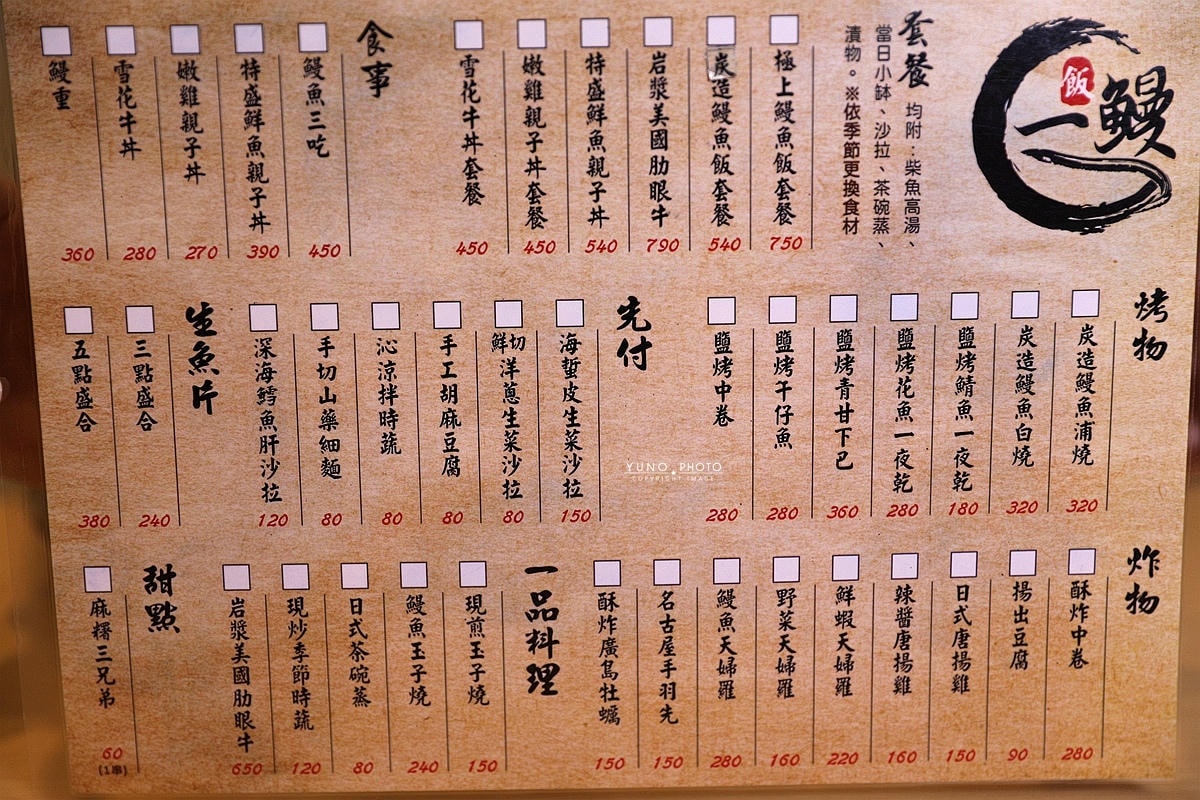 鰻
一
飯
套餐
均附：柴魚高湯、
當日小缽、沙拉、茶碗蒸、
漬物。※依季節更換食材
極上鰻魚飯套餐 750
炭造鰻魚飯套餐 540
岩漿美國肋眼牛 790
特盛鮮魚親子丼 540
嫩雞親子丼套餐 450
雪花牛丼套餐 450
食事
鰻魚三吃 450
特盛鮮魚親子丼 390
嫩雞親子丼 270
雪花牛丼 280
鰻重 360
烤物
炭造鰻魚浦燒 320
炭造鰻魚白燒 320
鹽烤鯖魚一夜乾 180
鹽烤花魚一夜乾 280
鹽烤青甘下巴 360
鹽烤午仔魚 280
鹽烤中卷 280
先付
海蜇皮生菜沙拉 150
鮮切洋蔥生菜沙拉 80
手工胡麻豆腐 80
沁涼拌時蔬 80
手切山藥細麵 80
深海鱈魚肝沙拉 120
生魚片
三點盛合 240
五點盛合 380
炸物
酥炸中卷 280
揚出豆腐 90
日式唐揚雞 150
辣醬唐揚雞 160
鮮蝦天婦羅 220
野菜天婦羅 160
鰻魚天婦羅 280
名古屋手羽先 150
酥炸廣島牡蠣 150
一品料理
現煎玉子燒 150
鰻魚玉子燒 240
日式茶碗蒸 80
現炒季節時蔬 120
岩漿美國肋眼牛 650
甜點
麻糬三兄弟 60
(1串)
YUNO PHOTO
COPYRIGHT IMAGE